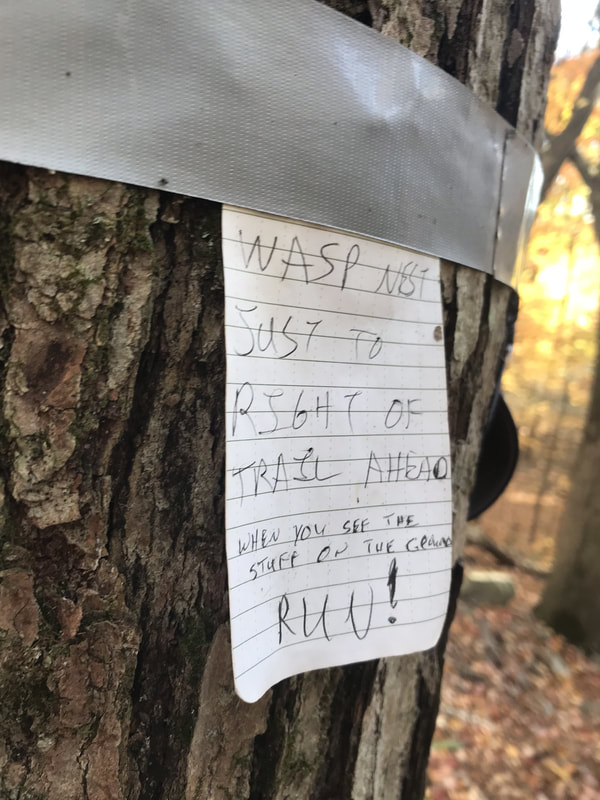 WASP NEST
JUST TO
RIGHT OF
TRAIL AHEAD
WHEN YOU SEE THE
STUFF ON THE GROUND
RUN!